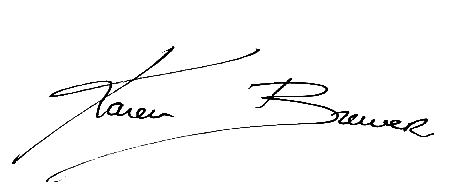 Karen Brewer